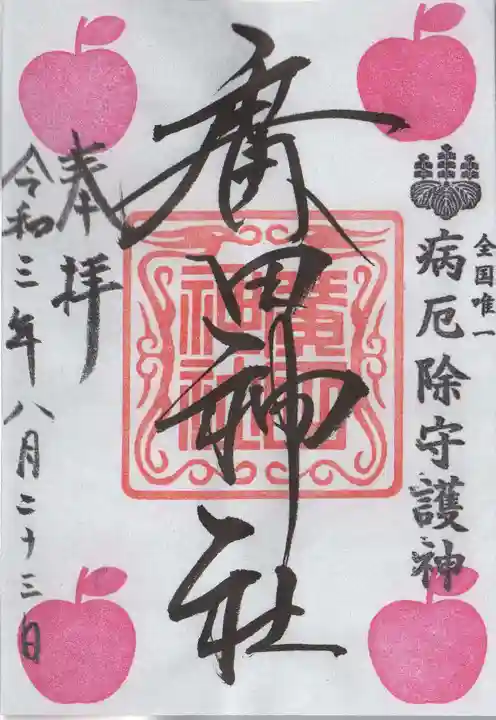 全国唯一
病厄除守護神
廣田神社
廣田神社
奉拝
令和三年八月二十三日